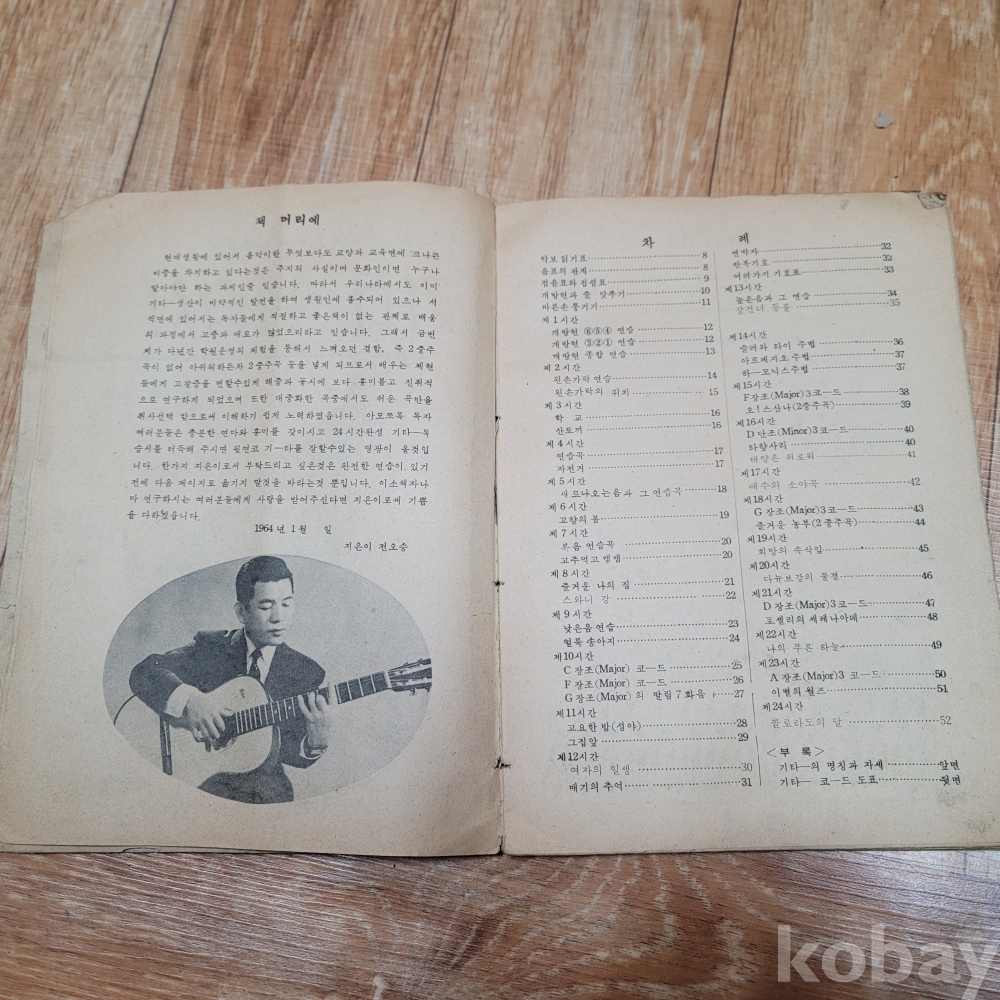 책 머리에
현대생활에 있어서 음악이란 무엇보다도 교양과 교육면에 크나큰
비중을 차지하고 있다는것은 주지의 사실이며 문화인이면 누구나
알아야만 하는 과제인줄 믿습니다. 따라서 우리나라에서도 이미
기타—생산이 비약적인 발전을 하여 생활인에 흡수되어 있으나 서
적면에 있어서는 독자들에게 적절하고 좋은책이 없는 관계로 배움
의 과정에서 고충과 애로가 많았으리라고 믿습니다. 그래서 금번
제가 다년간 학원운영의 체험을 통해서 느껴오던 결함, 즉 2중주
곡이 없어 아쉬워하든차 2중주곡 등을 넣게 되므로서 배우는 제현
들에게 고장증을 면할수있게 해줌과 동시에 보다 흥미롭고 진취적
으로 연구하게 되었으며 또한 대중화한 곡중에서도 쉬운 곡만을
취사선택 함으로써 이해하기 쉽게 노력하였읍니다. 아모쪼록 독자
여러분들은 충분한 연마와 흥미를 갖이시고 24시간완성 기타—독
습서를 터득해 주시면 필연코 기—타를 장할수있는 영광이 올것입
니다. 한가지 지은이로서 부탁드리고 싶은것은 완전한 연습이 있기
전에 다음 페이지로 옮기지 말것을 바라는것 뿐입니다. 이소책자나
마 연구하시는 여러분들에게 사랑을 받어주신다면 지은이로써 기쁨
을 다하겠읍니다.
1964년 1월 일
지은이 전오승
차 례
악보 읽기표 8
음표의 관계 8
점음표와 점쉼표 9
개방현과 줄 맞추기 10
바른손 퉁기기 11
제 1 시간
개방현 ⑥⑤④ 연습 12
개방현 ③②① 연습 12
개방현 종합 연습 13
제 2 시간
왼손가락 연습 14
왼손가락의 위치 15
제 3 시간
학 교 16
산토끼 16
제 4 시간
연습곡 17
자전거 17
제 5 시간
새로나오는음과 그 연습곡 18
제 6 시간
고향의 봄 19
제 7 시간
본음 연습곡 20
고추먹고 맴맴 20
제 8 시간
즐거운 나의 집 21
스와니 강 22
제 9 시간
낮은음 연습 23
얼룩 송아지 24
제10시간
C 장조(Major) 코—드 25
F 장조(Major) 코—드 26
G 장조(Major)의 딸림 7 화음 27
제11시간
고요한 밤(성야) 28
그집앞 29
제12시간
여자의 일생 30
매기의 추억 31
변박자 32
반복기호 32
여러가지 기호표 33
제13시간
높은음과 그 연습 34
강건너 등불 35
제14시간
슬러와 타이 주법 36
아르페지오 주법 37
하—모닉스주법 37
제15시간
F 장조(Major)3 코—드 38
오! 스산나(2중주곡) 39
제16시간
D 단조(Minor)3 코—드 40
타향사리 40
태양은 외로워 41
제17시간
애수의 소야곡 42
제18시간
G 장조(Major)3 코—드 43
즐거운 농부(2 중주곡) 44
제19시간
희망의 속삭임 45
제20시간
다뉴브강의 물결 46
제21시간
D 장조(Major)3 코—드 47
토셀리의 세레나아데 48
제22시간
나의 푸른 하늘 49
제23시간
A 장조(Major)3 코—드 50
이별의 월즈 51
제24시간
콜로라도의 달 52
<부 록>
기타—의 명칭과 자세 앞면
기타— 코—드 도표 뒷면
kobay